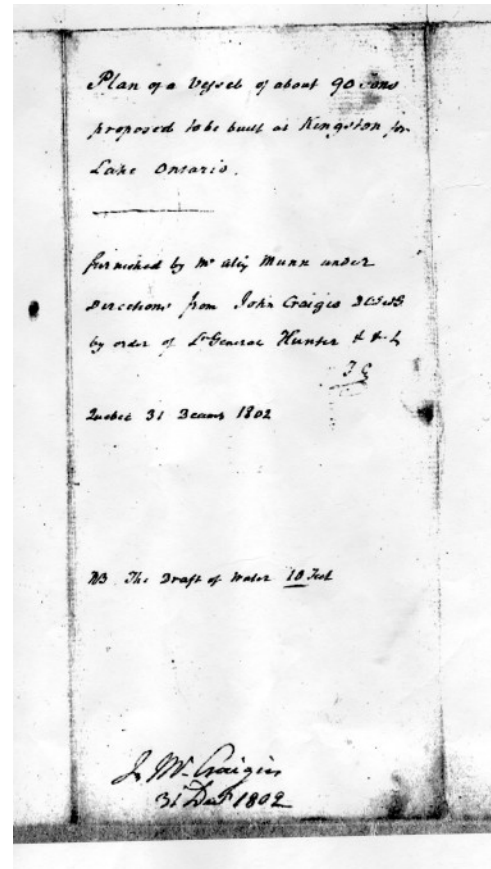 Plan of a Vessel of about 90 Tons
proposed to be built at Kingston for
Lake Ontario.
furnished by Mr Alex Munn under
Directions from John Craigie
by order of Lt General Hunter &
J C
Quebec 31 Decemr 1802
NB The Draft of Water 10 Feet
Craigie
31 Decr 1802